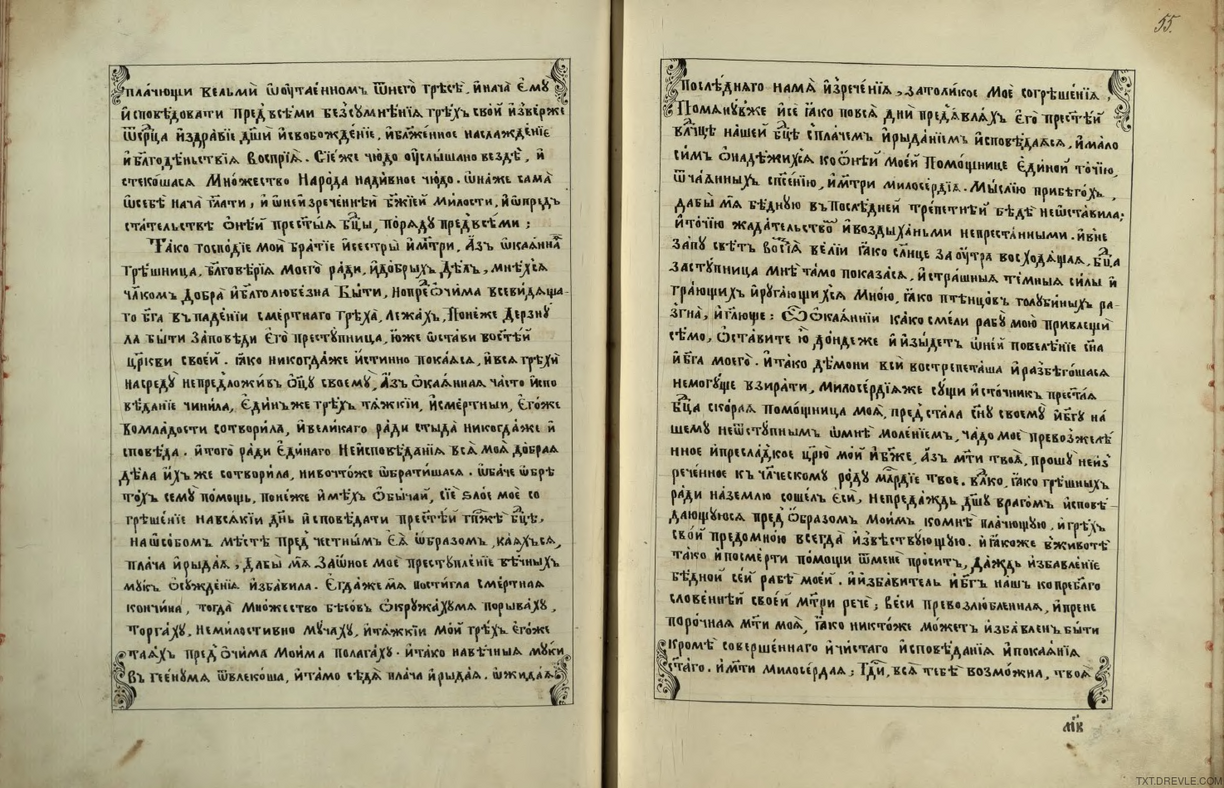 плачющи вельмѝ ѿ ѹтаенномъ ѿнегѡ̀ грѣсѣ. и҆нача̀ є҆мꙋ̀
и҆сповѣдовати пред̾всѣми без̾сꙋмнѣнїѧ грѣхъ свой и҆зверже
ѿсрⷣца и҆здравїе дш҃и и҆свобожденїе, и҆бл҃женное наслажденїе
и҆бл҃годѣньствїѧ воспрїѧ̀. Сїе́же чю́до ѹ҆слышано вездѣ̀, и҆
стекошасѧ Мно́жество Наро́да надивное чю́до. ѡ҆на́же сама̀
ѡ҆себѣ̀ нача̀ гл҃ати, и҆ ѡ҆неизреченнѣй бж҃їей Ми́лости, и҆ѡ҆предъ
стательствѣ ѻ҆нѣ́й прест҃ы́ѧ бц҃ы, по́рѧдꙋ предъвсѣ́ми :
Та́ко господїе мои̑ бра́тїе и҆сестры̀ и҆мт҃ри. А҆́зъ ѡ҆каѧ́ннаѧ
грѣшница, бл҃говѣ́рїѧ моегѡ̀ ра́ди, и҆до́брыхъ дѣ́лъ, мнѣ́хсѧ
чл҃комъ добра̀ и҆бл҃голюбе́зна бы́ти, Нопреⷣ ѻ҆чи́ма всеви́дѧща-
го бг҃а въпаде́нїи сме́ртнаго грѣха̀, лежа́хъ, Поне́же дерзнꙋ
ла бы́ти за́поведи є҆гѡ̀ престꙋпница, ю҆́же ѡ҆ста́ви во ст҃ѣй
цр҃кви свое́й. ꙗ҆́ко никогда́же и҆́стинно пока́ѧсѧ, и҆всѧ̑ грѣхѝ
насредꙋ̀ непредложи́въ ѻ҆ц҃ꙋ̀ своемꙋ̀, А҆́зъ ѻ҆каѧ́ннаѧ ча́сто и҆спо
вѣ́данїе чини́ла, є҆ди́нъже грѣ́хъ тѧ́жкїй, и҆сме́ртный, є҆го́же
вомла́дости сотвори́ла, и҆вели́каго ра́ди стыда̀ никогда́же и҆
сповѣда. и҆того̀ ра́ди є҆ди́наго Неисповѣ́данїѧ всѧ̑ моѧ̑ до́браѧ
дѣла̀ и҆́хъже сотвори́ла, нивочто́же ѡ҆брати́шасѧ. ѡ҆ба́че ѡ҆брѣ
то́хъ семꙋ̀ по́мощь, поне́же и҆мѣ́хъ ѻ҆бы́чай, сїѐ ѕло́е моѐ со
грѣше́нїе навсѧ́кїй дн҃ь и҆сповѣ́дати прест҃ѣ́й гп҃жѣ бц҃ѣ,
на ѡ҆со́бомъ мѣ́стѣ пред че́стнымъ є҆ѧ̀ ѡ҆́бразомъ, ка́ѧхъсѧ,
пла́ча и҆рыда́ѧ, дабы̀ мѧ̀ за ѻ҆́ное моѐ престꙋпле́нїе вѣ́чныхъ
мꙋ́къ ѻ҆сꙋжде́нїѧ и҆зба́вила. Є҆гда́же мѧ̀ пости́гла сме́ртнаѧ
кончи́на, тогда̀ Мно́жество бѣсо́въ ѻ҆крꙋжа́хꙋ мѧ̀ порыва́хꙋ,
торга́хꙋ, немилостивно мꙋ́чахꙋ, и҆тѧ́жкїй мо́й грѣ́хъ є҆го́же
таѧ́хъ пред ѻ҆чи́ма Мои́ма полага́хꙋ. и҆та́ко навѣ́чныѧ мꙋ́ки
въ гее́ннꙋ мѧ̀ ѿвлеко́ша, и҆та́мо сѣдѧ̀ пла́ча и҆рыда́ѧ. ѡ҆жида́ѧ
55.
послѣ́днѧго намѧ̀ и҆зрече́нїѧ, затоли́кое Моѐ согрѣше́нїѧ,
Помѧнꙋ́вже и҆сѐ ꙗ҆́ко повсѧ̑ дни̑ предъѧвлѧ́хъ є҆гѡ̀ прест҃ѣ́й
влⷣчцѣ на́шей бц҃ѣ спла́чемъ и҆рыда́нїемъ и҆сповѣ́даѧсѧ, и҆ма́ло
си́мъ ѻ҆наде́жихсѧ ко ѻ҆нѣ́й мое́й Помо́щнице є҆ди́ной то́чїю,
ѿча́ѧнныхъ сп҃се́нїю, и҆мт҃ри милосе́рдїѧ. Мы́слїю прибѣго́хъ,
дабы̀ мѧ̀ бѣ́днꙋю въпослѣ́дней тре́петнѣй бѣдѣ̀ неѡ҆ста́вила;
и҆то́чїю жада́тельство̀ и҆воздыха́ньми непреста́нными. и҆вне
за́пꙋ свѣ́тъ возсїѧ̀ ве́лїй ꙗ҆́ко со́лнце заѹ҆́тра восходѧ́щаѧ, бц҃а
застꙋ́пница мнѣ̀ та́мо показа́сѧ, и҆стра́шныѧ те́мныѧ си́лы и҆
гра́ющихъ и҆рꙋга́ющихсѧ Мно́ю, ꙗ҆́ко пте́нцовъ голꙋби́ныхъ ра-
згна̀, и҆гл҃юще : Ѽ ѻ҆каѧ́ннїи ка́ко смѣ́ли рабꙋ̀ мою̀ привлещѝ
сѣ́мо, ѻ҆ста́вите ю҆̀ до́ндеже и҆ и҆зы́детъ ѡ҆ не́й повелѣ́нїе сн҃а
и҆бг҃а моегѡ̀. и҆та́ко де́мони всѝ вострепета́ша и҆разбѣго́шасѧ
немогꙋ́ще взира́ти, Милосе́рдїѧже сꙋ́щи и҆сто́чникъ прест҃аѧ
бц҃а ско́раѧ помо́щница моѧ̀, пред ста́ла сн҃ꙋ своемꙋ̀ и҆бг҃ꙋ на́
шемꙋ неѿстꙋ́пнымъ ѡ҆ мнѣ̀ моле́нїемъ, ча́до моѐ превозжелѣ́
нное и҆пресла́дкое цр҃ю мо́й и҆бж҃е, а҆́зъ мт҃и твоѧ̀, прошꙋ̀ неиз̾
рече́нное къ чл҃ческомꙋ ро́дꙋ млⷭ҇рдїе твоѐ. влⷣко, ꙗ҆́ко грѣ́шныхъ
ра́ди на́землю соше́лъ є҆сѝ, Непреда́ждь дш҃ꙋ враго́мъ и҆сповѣ́
дающꙋюсѧ пред ѻ҆́бразомъ Мои́мъ ко мнѣ̀ пла́чющꙋю, и҆грѣ́хъ
сво́й предомно́ю всегда̀ и҆звѣ́ствꙋющꙋю. и҆ ꙗ҆́коже в животѣ̀
та́ко и҆посме́рти по́мощи ѿменѐ про́ситъ, да́ждь и҆збавле́нїе
бѣ́дной се́й рабѣ̀ мое́й. и҆ и҆зба́витель и҆бг҃ъ на́шъ ко пребл҃го
слове́ннѣй свое́й мт҃ри речѐ; ве́си превозлю́бленнаѧ, и҆прене
поро́чнаѧ мт҃и моѧ̀, ꙗ҆́ко никто́же мо́жетъ и҆зба́вленъ бы́ти
кромѣ̀ соверше́ннаго и҆чи́стаго и҆сповѣ́данїѧ и҆покаѧ́нїѧ
ст҃а́го. и҆мт҃и милосе́рдаѧ; Гдⷭ҇и, всѧ̑ тебѣ̀ возмо́жна, твоѧ̀
TXT.DREVLE.COM